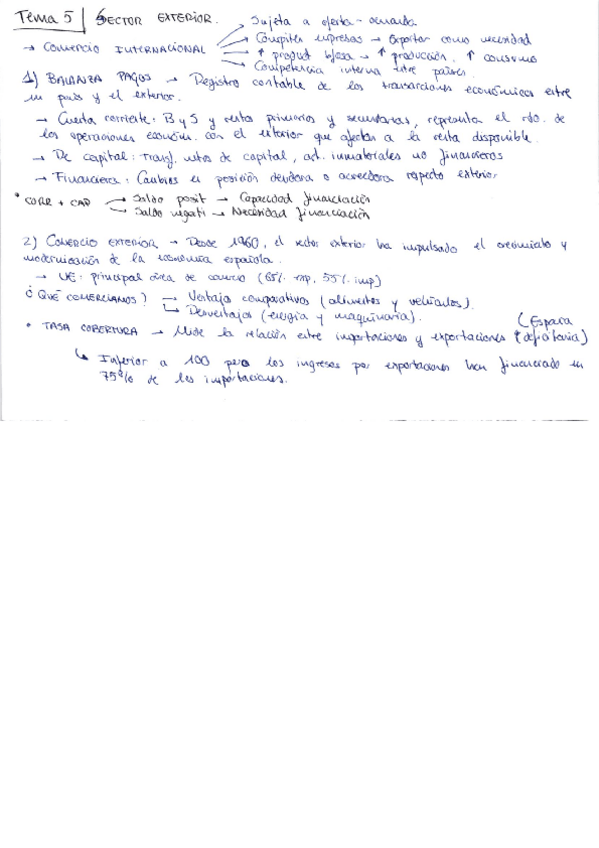 Tema 5 | SECTOR EXTERIOR.
→ COMERCIO INTERNACIONAL
→ Sujeta a oferta-demanda
→ Compiten empresas → Exportar como necesidad
→ ↑ product b/esa → ↑ producción, ↑ consumo
→ Competencia interna entre países.
1) BALANZA PAGOS → Registro contable de las transacciones económicas entre
un país y el exterior.
→ Cuenta corriente: B y S y rentas primarias y secundarias, representa el rdo. de
las operaciones económ. con el exterior que afectan a la renta disponible.
→ De capital: Transf. netas de capital, act. inmateriales no financieros
→ Financiera: Cambios en posición deudora o acreedora respecto exterior
* CORR + CAP → Saldo posit → Capacidad financiación
→ Saldo negati → Necesidad financiación
2) COMERCIO EXTERIOR → Desde 1960, el sector exterior ha impulsado el crecimiento y
modernización de la economía española.
→ UE: principal área de comercio (65% exp, 55% imp)
¿QUÉ COMERCIAMOS? → Ventaja comparativas (alimentos y vehículos).
→ Desventajas (energía y maquinaria).
• TASA COBERTURA → Mide la relación entre importaciones y exportaciones (España
deficitaria)
↳ Inferior a 100 pero los ingresos por exportaciones han financiado un
75% de las importaciones.